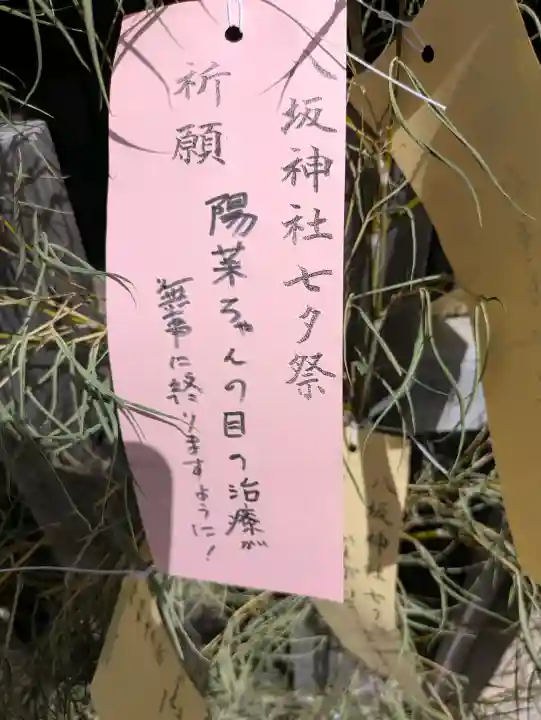 八坂神社七夕祭
祈願
陽菜ちゃんの目の治療が
無事に終りますように!
八坂神社七夕